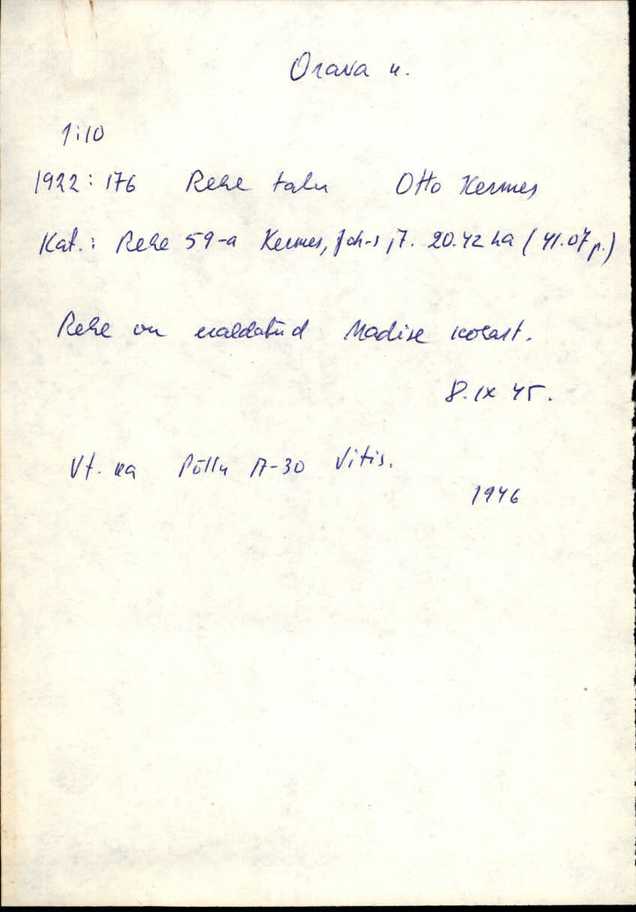 Orava k.
1:10
1922: 176 Rehe talu Otto Kermes
Kat.: Rehe 59-a Kermes, Joh-s, 20.42 ha (41.07 p.)
Rehe on eraldatud Madise kohast.
8. IX 45.
Vt. ka Põllu A-30 Vitis.
1946